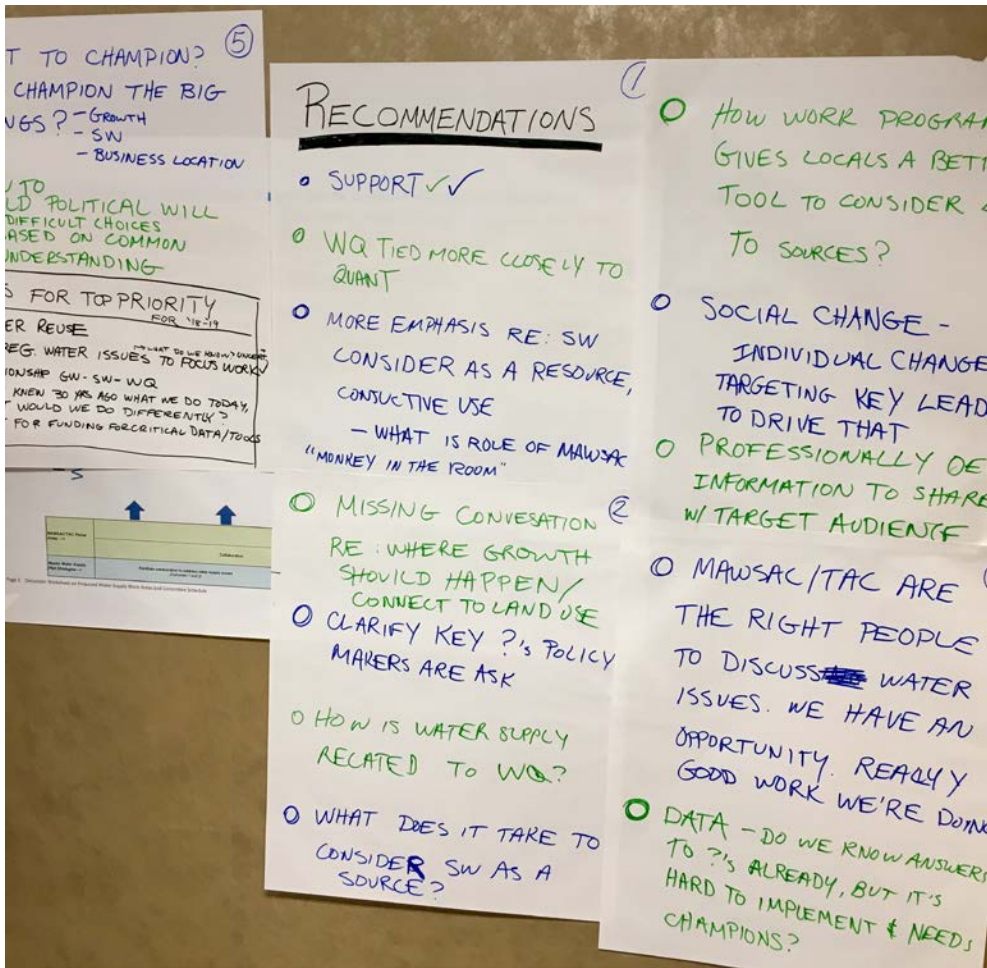 T TO CHAMPION? 5
CHAMPION THE BIG
NGS? - GROWTH
- SW
- BUSINESS LOCATION
TO
LD POLITICAL WILL
DIFFICULT CHOICES
ASED ON COMMON
UNDERSTANDING
S FOR TOP PRIORITY
FOR '18-19
ER REUSE
REG. WATER ISSUES TO FOCUS WORK
WHAT DO WE KNOW?
IONSHIP GW-SW-WQ
KNEW 30 YRS AGO WHAT WE DO TODAY,
WOULD WE DO DIFFERENTLY?
FOR FUNDING FOR CRITICAL DATA/TOOLS
Collaboration
1
RECOMMENDATIONS
SUPPORT ✓✓
WQ TIED MORE CLOSELY TO
QUANT
MORE EMPHASIS RE: SW
CONSIDER AS A RESOURCE,
CONJUCTIVE USE
- WHAT IS ROLE OF MAWSAC
"MONKEY IN THE ROOM"
2
MISSING CONVESATION
RE: WHERE GROWTH
SHOULD HAPPEN/
CONNECT TO LAND USE
CLARIFY KEY ?'s POLICY
MAKERS ARE ASK
HOW IS WATER SUPPLY
RECATED TO WQ?
WHAT DOES IT TAKE TO
CONSIDER SW AS A
SOURCE?
HOW WORK PROGRAM
GIVES LOCALS A BETT
TOOL TO CONSIDER
TO SOURCES?
SOCIAL CHANGE -
INDIVIDUAL CHANGE
TARGETING KEY LEAD
TO DRIVE THAT
PROFESSIONALLY DE
INFORMATION TO SHARE
W/ TARGET AUDIENCE
MAWSAC/TAC ARE
THE RIGHT PEOPLE
TO DISCUSS WATER
ISSUES. WE HAVE AN
OPPORTUNITY. REALLY
GOOD WORK WE'RE DOING
DATA - DO WE KNOW ANSWERS
TO ?'s ALREADY, BUT IT'S
HARD TO IMPLEMENT & NEEDS
CHAMPIONS?